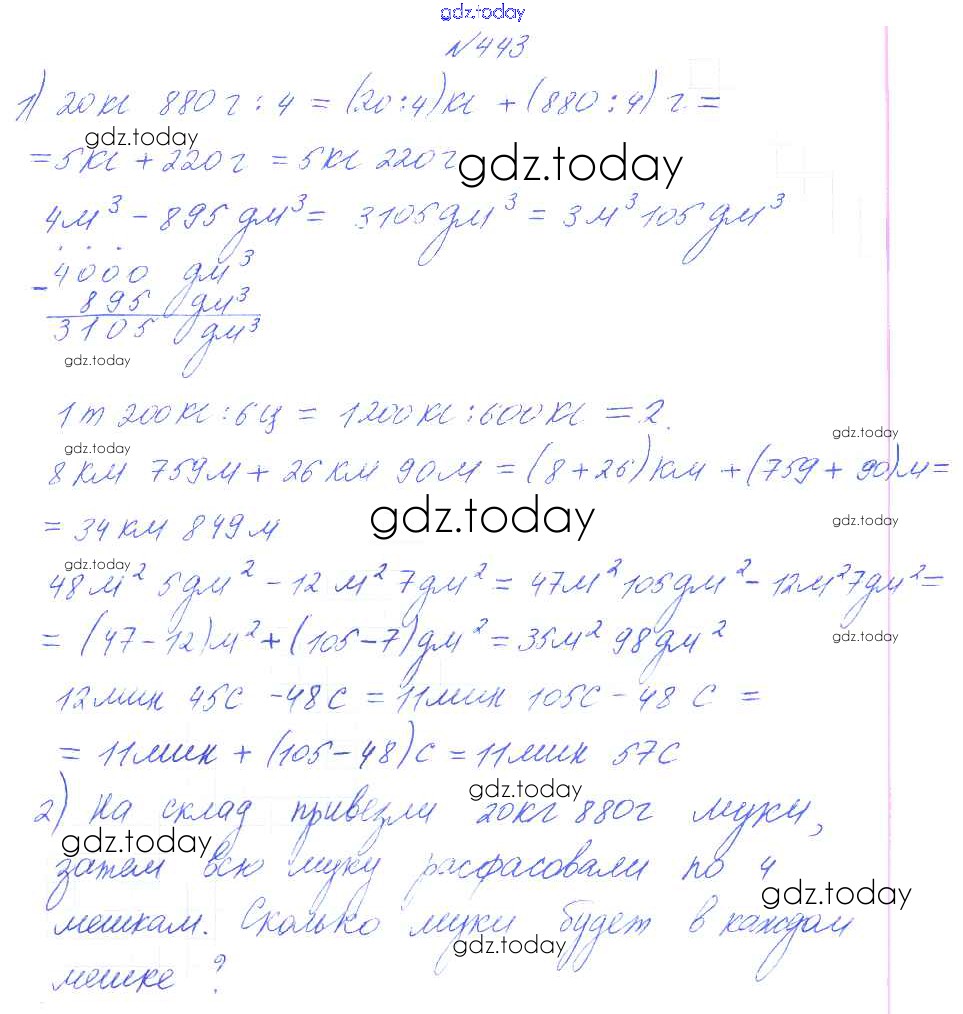 gdz.today
№443
1) 20кг 880г : 4 = (20:4)кг + (880:4) г =
gdz.today
= 5кг + 220г = 5кг 220г
gdz.today
4м³ - 895 дм³ = 3105 дм³ = 3м³ 105 дм³
- 4000 дм³
895 дм³
3105 дм³
gdz.today
1т 200кг : 6ц = 1200кг : 600кг = 2.
gdz.today
gdz.today
8км 759м + 26км 90м = (8+26)км + (759 + 90)м =
= 34км 849м
gdz.today
gdz.today
gdz.today
48м² 5дм² - 12 м² 7дм² = 47м² 105дм² - 12м² 7дм² =
= (47-12)м² + (105-7)дм² = 35м² 98дм²
gdz.today
12мин 45с - 48с = 11мин 105с - 48 с =
= 11мин + (105-48)с = 11мин 57с
gdz.today
2) На склад привезли 20кг 880г муки,
gdz.today
затем всю муку расфасовали по 4
gdz.today
мешкам. Сколько муки будет в каждом
gdz.today
мешке ?